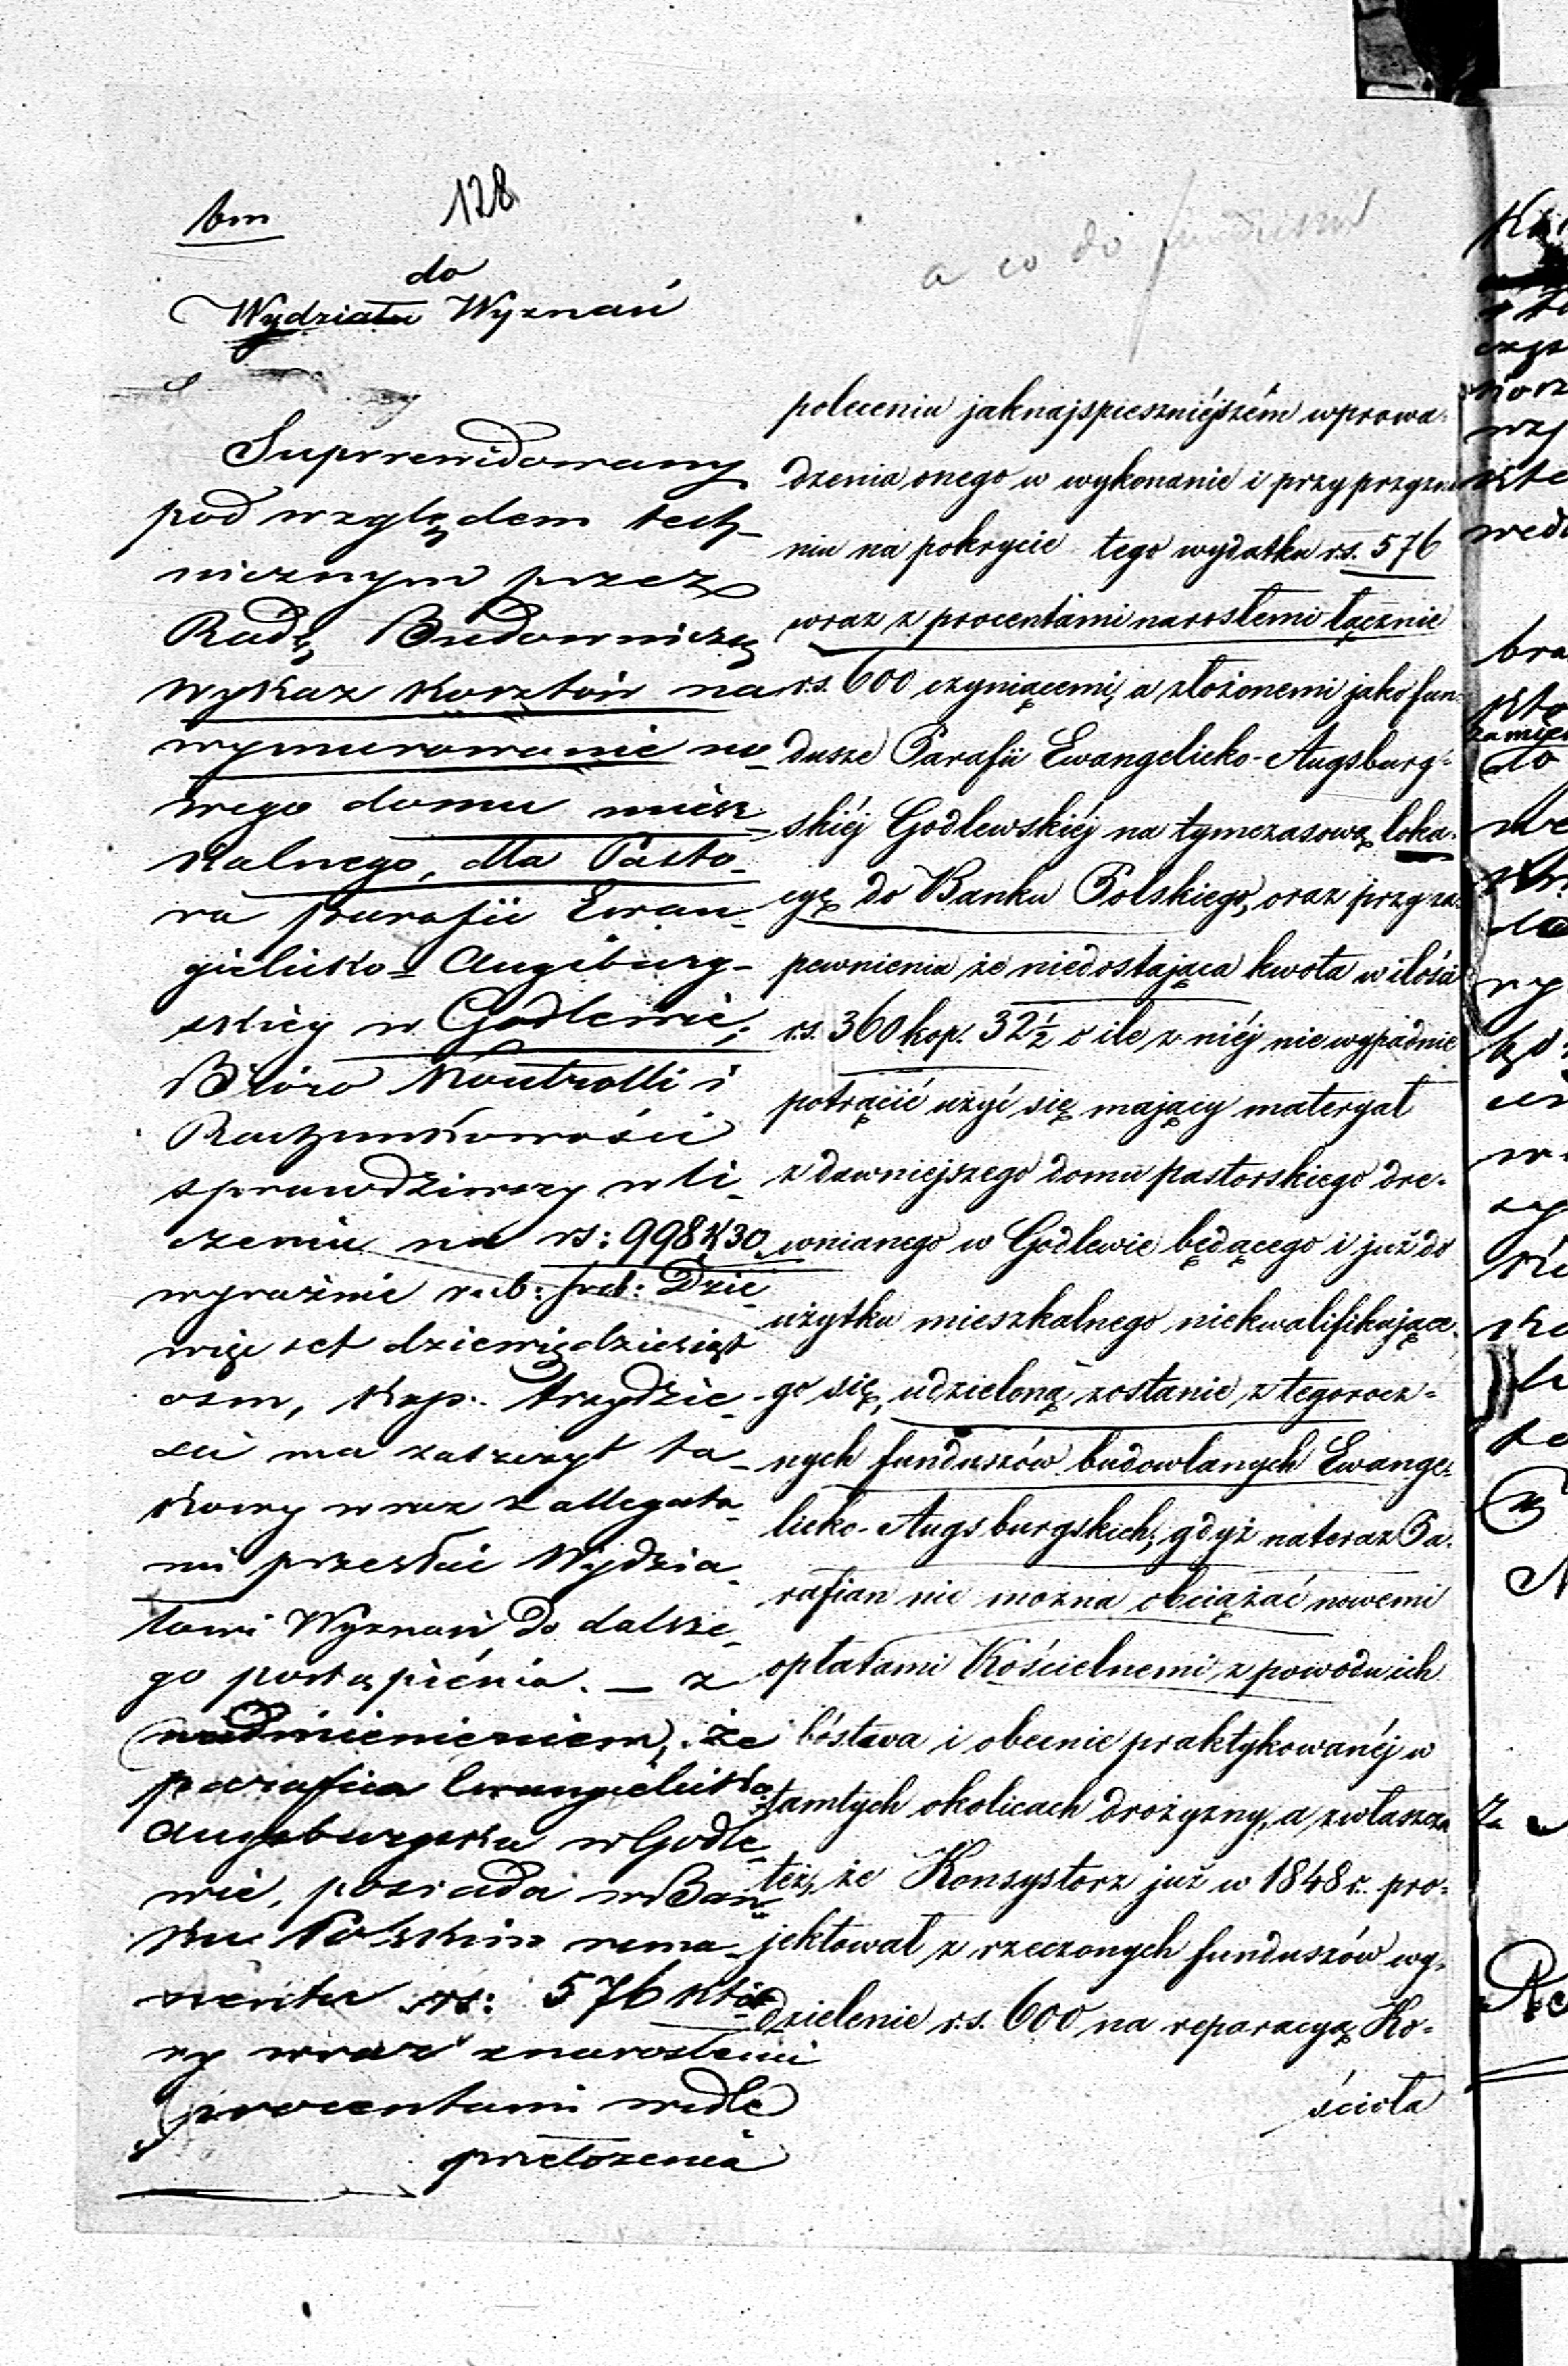 128
do
Wydziału Wyznań
Superrewidowany
pod względem tech-
nicznym przez
Radę Budowniczą
wykaz kosztów na
wymurowanie no-
wego domu miesz-
kalnego, dla Pasto-
ra parafii Ewan-
gielicko-Augsburg-
skiey w Godlewie,
Bióro Kontrolli i
Rachunkowości
sprawdziwszy w li-
czeniu na rs: 998 k 30
wyraźnie rub: sreb: Dzie-
więćset dziewiędziesiąt
osm, kop: trzydzie-
ści ma zaszczyt ta-
kowy wraz z allegata-
mi przesłać Wydzia-
łowi Wyznań do dalsze-
go postąpienia. — z
nadmienieniem, że
parafia Ewangielicko
Augsburgska w Godle-
wie, posiada w Ban-
ku Polskim rema-
nentu rs: 576 któ-
ry wraz z narosłemi
procentami wedle
przełożenia
a co do funduszu
poleceniu jaknajspieszniéjszém wprowa-
dzenia onego w wykonanie i przy przyzna-
niu na pokrycie tego wydatku r.s. 576
wraz z procentami narosłemi łącznie
r.s. 600 czyniącemi, a złożonemi jako fun-
dusze Parafii Ewangelicko-Augsburg-
skiéj Godlewskiéj na tymczasową loka-
cyę do Banku Polskiego, oraz przy za-
pewnienia że niedostająca kwota w ilości
r.s. 360 kop. 32½ o ile z niéj nie wypadnie
potrącić użyć się mający materyał
z dawniejszego domu pastorskiego dre-
wnianego w Godlewie będącego i już do
użytku mieszkalnego niekwalifikujące-
go się, udzieloną zostanie z tegorocz-
nych funduszów budowlanych Ewange-
licko-Augsburgskich, gdyż nateraz Pa-
rafian nie można obciążać nowemi
opłatami Kościelnemi z powodu ich
bóstwa i obecnie praktykowanéj w
tamtych okolicach drożyzny, a zwłaszcza
też, że Konsystorz już w 1848 r. pro-
jektował z rzeczonych funduszów wy-
dzielenie r.s. 600 na reparacyą Ko-
ścioła